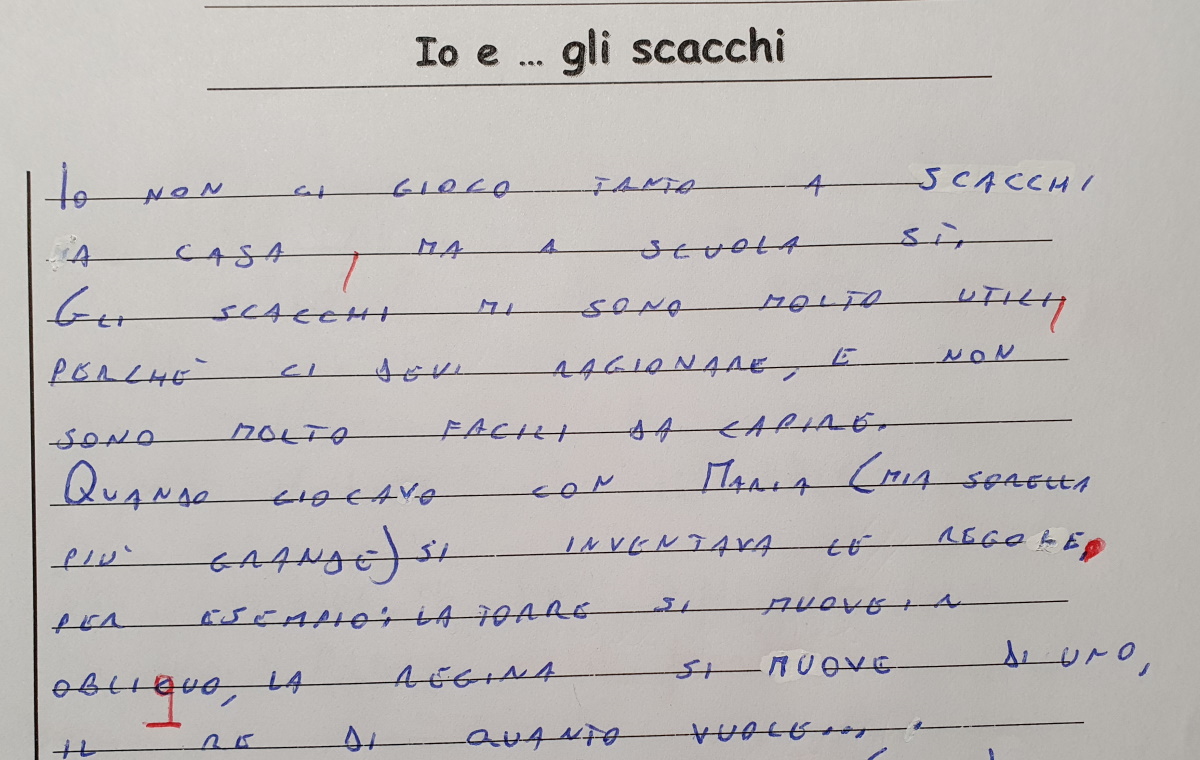 Io e ... gli scacchi
Io NON CI GIOCO TANTO A SCACCHI
A CASA, MA A SCUOLA SÌ.
GLI SCACCHI MI SONO MOLTO UTILI,
PERCHÈ CI DEVI RAGIONARE, E NON
SONO MOLTO FACILI DA CAPIRE.
QUANDO GIOCAVO CON MARIA (MIA SORELLA
PIÙ GRANDE) SI INVENTAVA LE REGOLE,
PER ESEMPIO: LA TORRE SI MUOVE IN
OBLIQUO, LA REGINA SI MUOVE DI UNO,
IL RE DI QUANTO VUOLE....